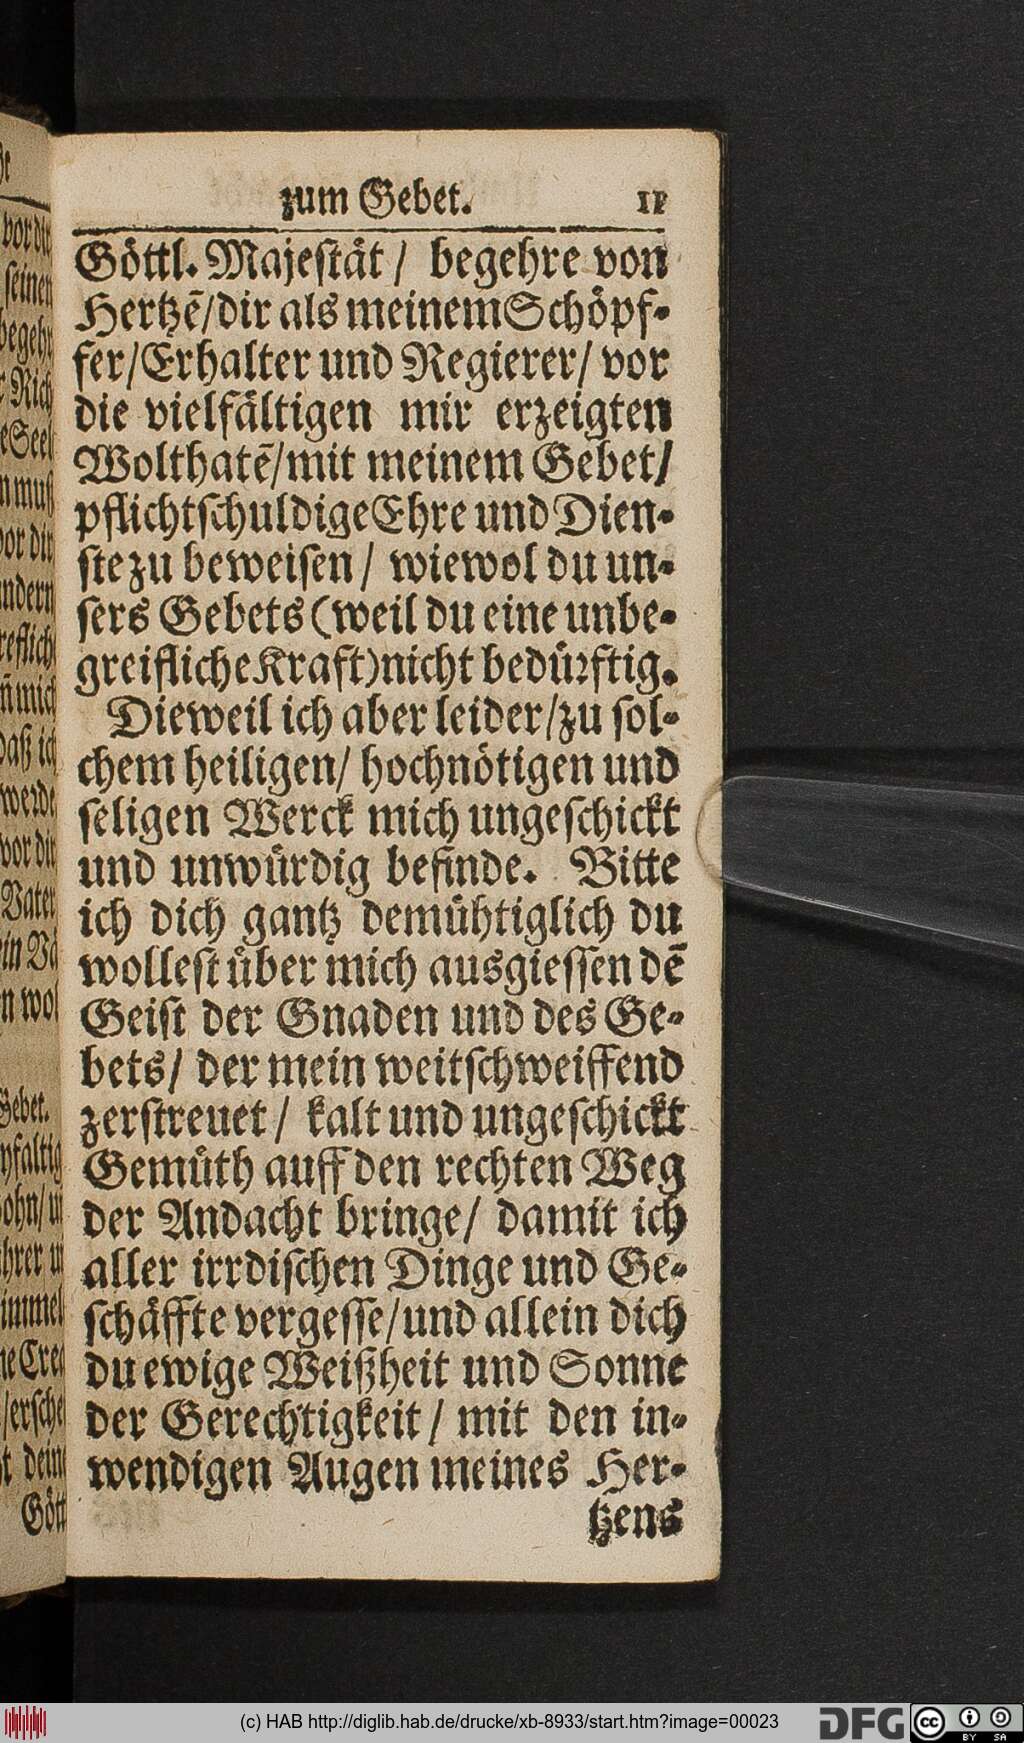 zum Gebet. 11
Göttl. Majestät / begehre von
Hertzē/dir als meinem Schöpf-
fer/Erhalter und Regierer/ vor
die vielfältigen mir erzeigten
Wolthatē/mit meinem Gebet/
pflichtschuldige Ehre und Dien-
ste zu beweisen / wiewol du un-
sers Gebets (weil du eine unbe-
greifliche Kraft) nicht bedürftig.
Dieweil ich aber leider/zu sol-
chem heiligen/ hochnötigen und
seligen Werck mich ungeschickt
und unwürdig befinde. Bitte
ich dich gantz demühtiglich du
wollest über mich ausgiessen dē
Geist der Gnaden und des Ge-
bets/ der mein weitschweiffend
zerstreuet / kalt und ungeschickt
Gemüth auff den rechten Weg
der Andacht bringe/ damit ich
aller irrdischen Dinge und Ge-
schäffte vergesse/und allein dich
du ewige Weißheit und Sonne
der Gerechtigkeit / mit den in-
wendigen Augen meines Her-
tzens
vor dir
seinen
begehr
Rich
Seel
n muß
vor dir
ndern
reflich
ñ mich
daß ich
werde
vor dir
Vater
n wol
Gebet.
yfaltig
ohn/
hrer
immel
ne Crea
/ersche
t dein
Gött
(c) HAB http://diglib.hab.de/drucke/xb-8933/start.htm?image=00023
DFG
cc
BY SA